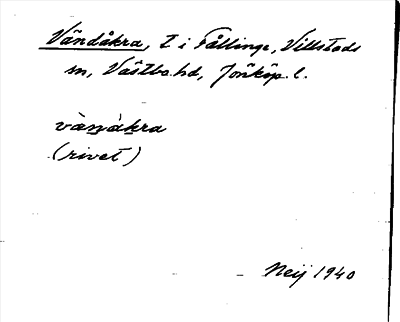 Vändåkra, t i Fållinge, Villstads
sn, Västbo hd, Jönköp. l.
vànåkra
(rivet)
Neij 1940